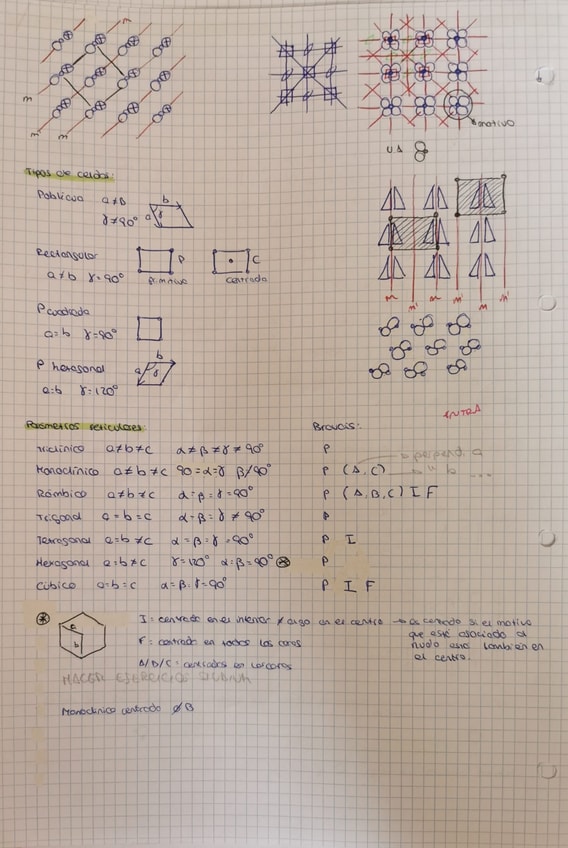 m
m
m'
m
motivo
Tipos de celdas:
P oblicua a≠b
γ≠90°
b
a γ
Rectangular
a≠b γ=90°
P
primitivo
C
centrada
P cuadrada
a=b γ=90°
P hexagonal
a=b γ=120°
b
a γ
m m' m m' m m'
ENTRA
Parametros reticulares:
Bravais:
Triclinico a≠b≠c α≠β≠γ≠90° P
Monoclínico a≠b≠c 90=α=γ β≠90° P (A,C)
perpend. a
" b ...
Rómbico a≠b≠c α=β=γ=90° P (A,B,C) I F
Trigonal a=b=c α=β=γ≠90° P
Tetragonal a=b≠c α=β=γ=90° P I
Hexagonal a=b≠c γ=120° α=β=90° * P
Cúbico a=b=c α=β=γ=90° P I F
*
a
b
I: centrado en el interior ≠ algo en el centro → es centrado si el motivo
que está asociado al
nudo está también en
el centro.
F: centrado en todas las caras
A/B/C: centrados en las caras
HACER EJERCICIOS
Monoclinico centrado ∅ B